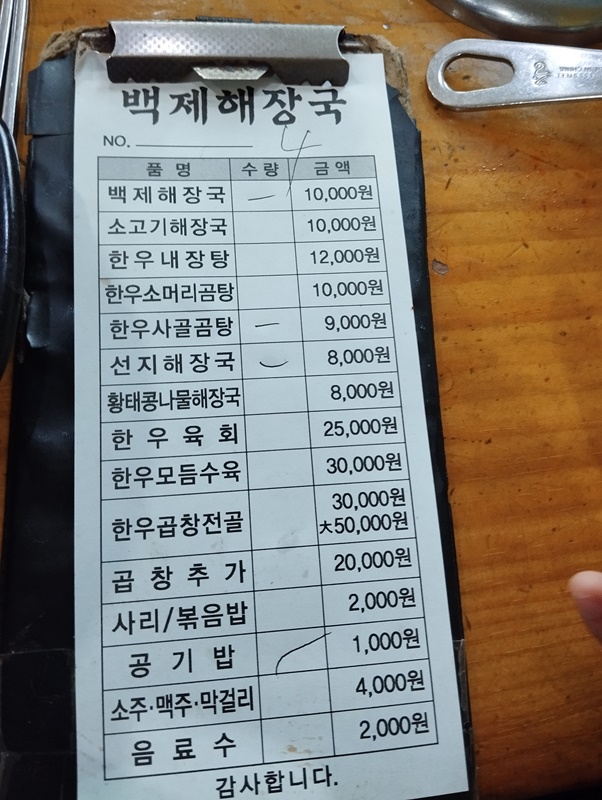 백제해장국
4
NO.
품 명 수량 금액
백제해장국 一 10,000원
소고기해장국 10,000원
한우내장탕 12,000원
한우소머리곰탕 10,000원
한우사골곰탕 一 9,000원
선지해장국 一 8,000원
황태콩나물해장국 8,000원
한우육회 25,000원
한우모듬수육 30,000원
한우곱창전골 30,000원
大50,000원
곱창추가 20,000원
사리/볶음밥 2,000원
공기밥 1,000원
소주·맥주·막걸리 4,000원
음료수 2,000원
감사합니다.